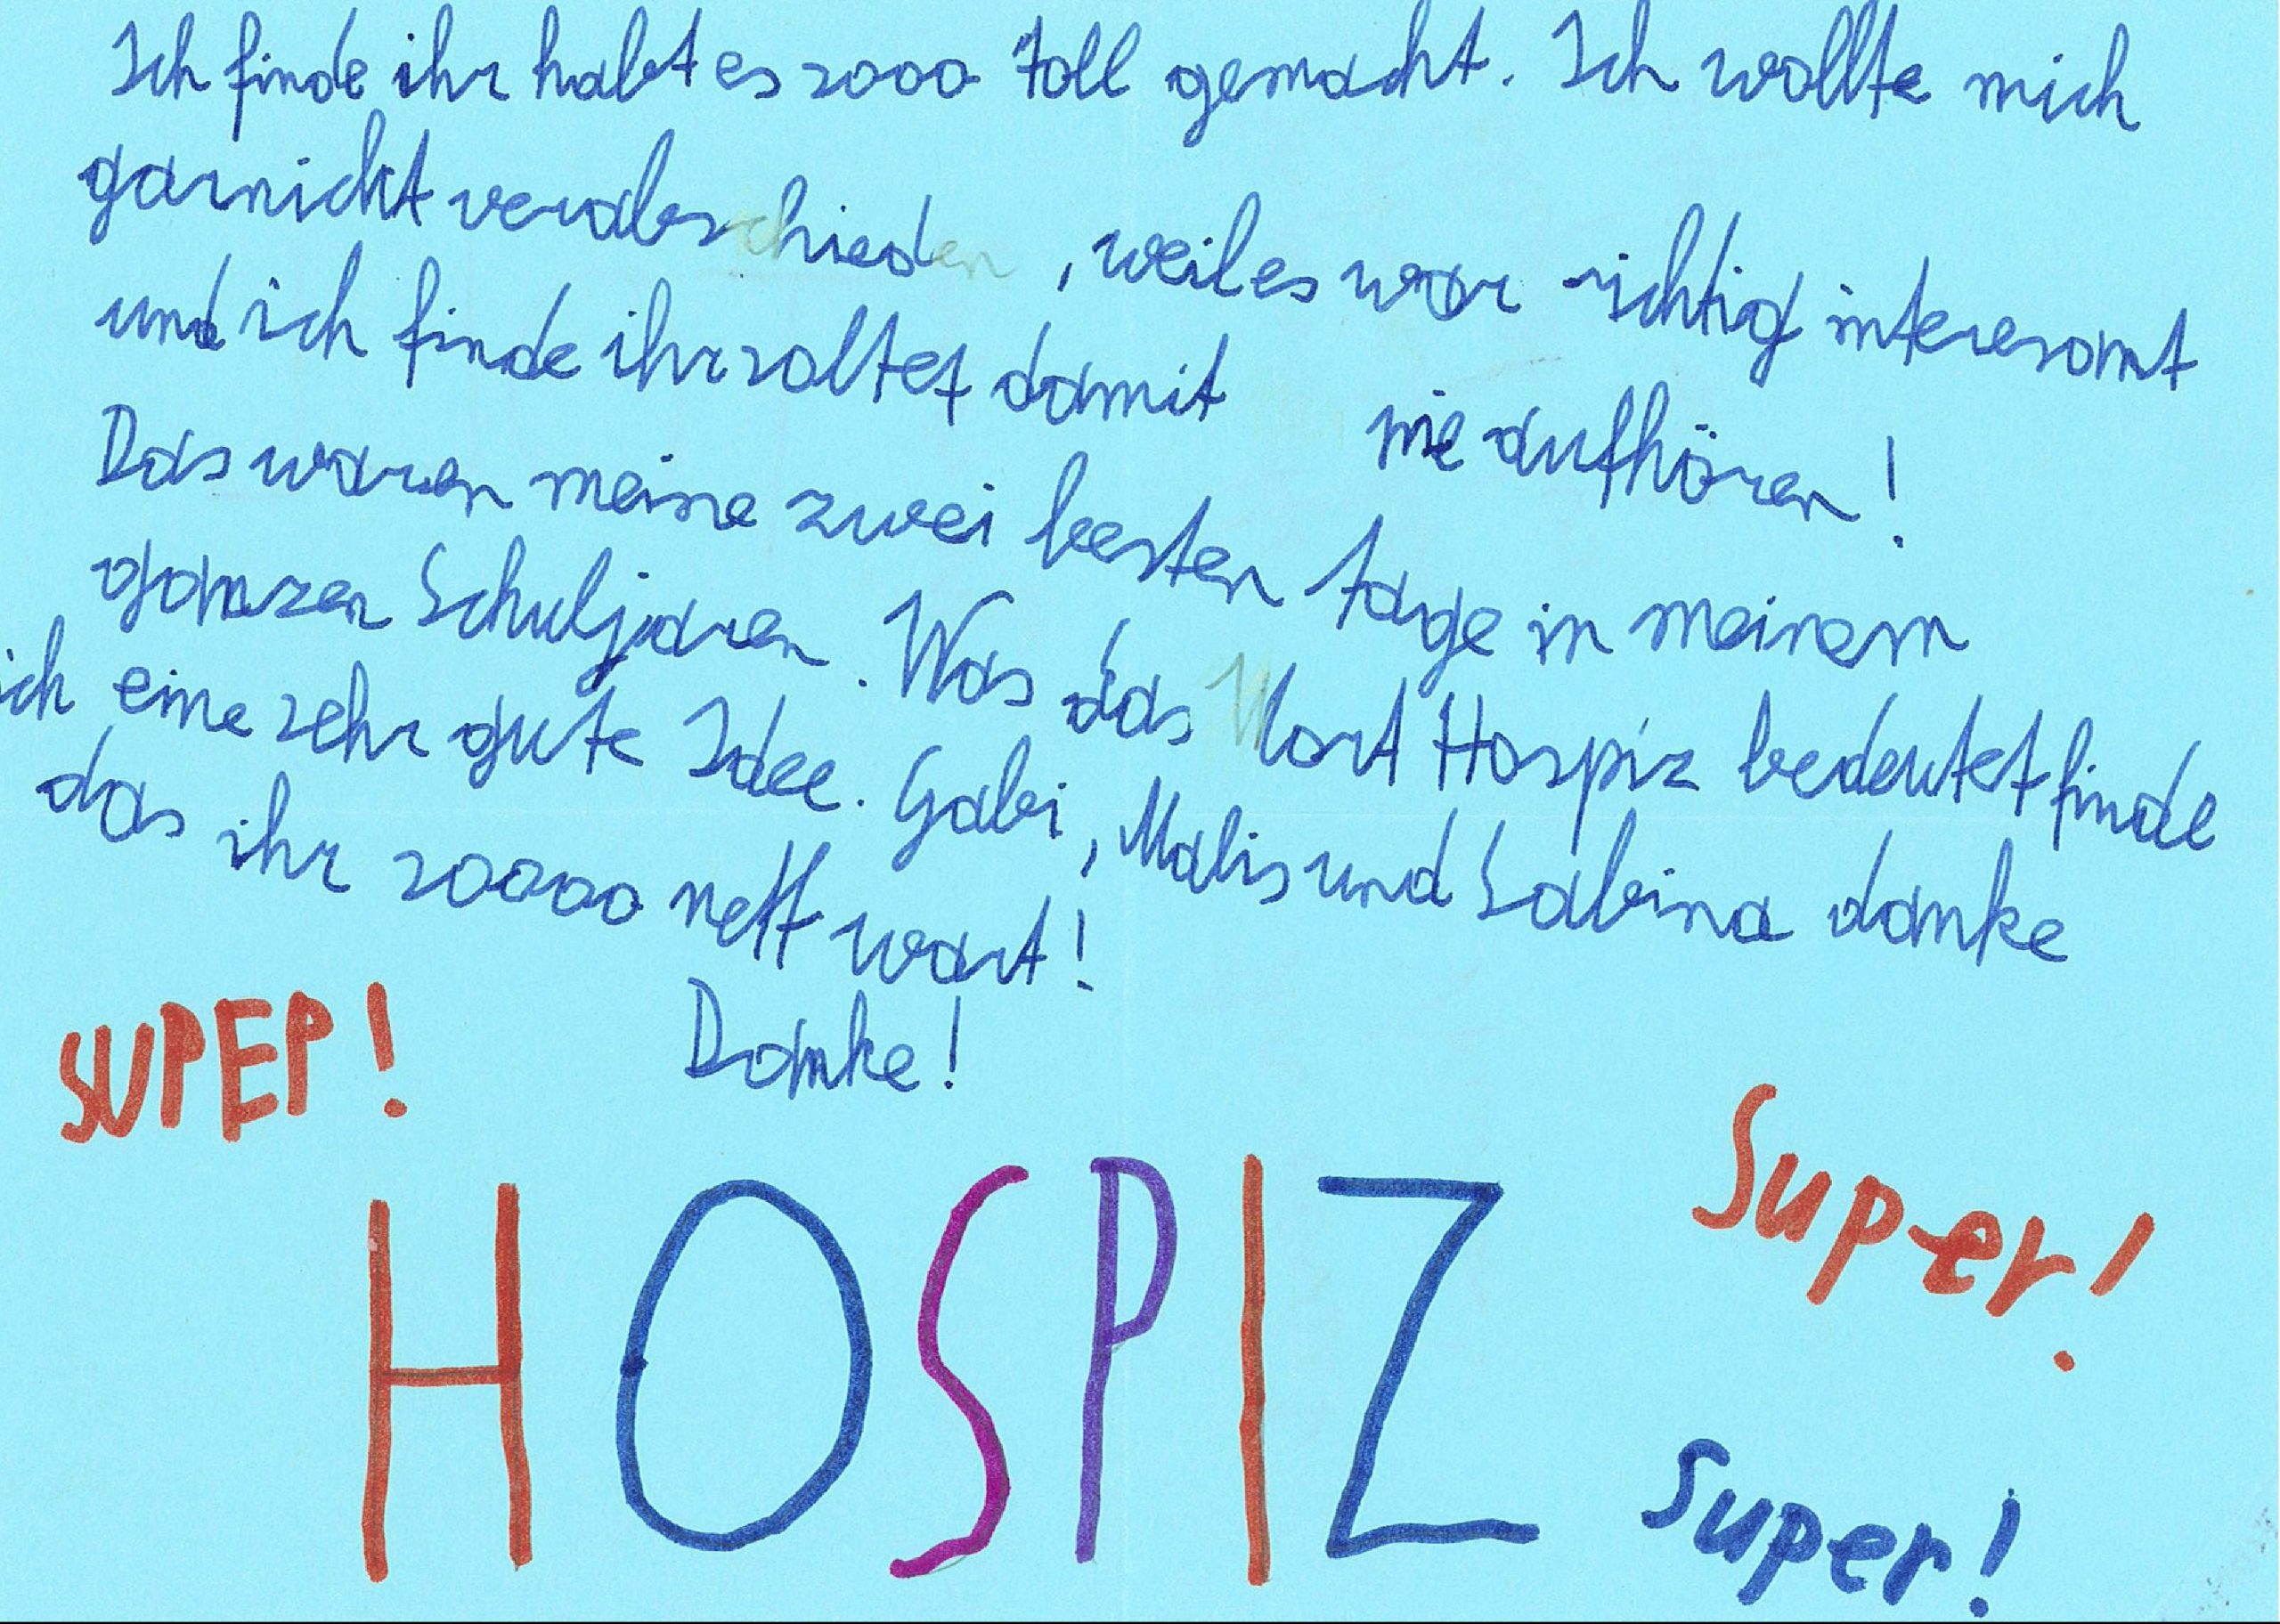 Ich finde ihr habt es sooo toll gemacht. Ich wollte mich
garnicht verabschieden, weil es war richtig interesant
und ich finde ihr soltet damit nie aufhören!
Das waren meine zwei besten tage in meinem
ganzen Schuljaren. Was das Wort Hospiz bedeutet finde
ich eine sehr gute Idee. Gabi, Malis und Sabina danke
das ihr soooo nett wart!
Danke!
SUPEP!
Super!
HOSPIZ
super!